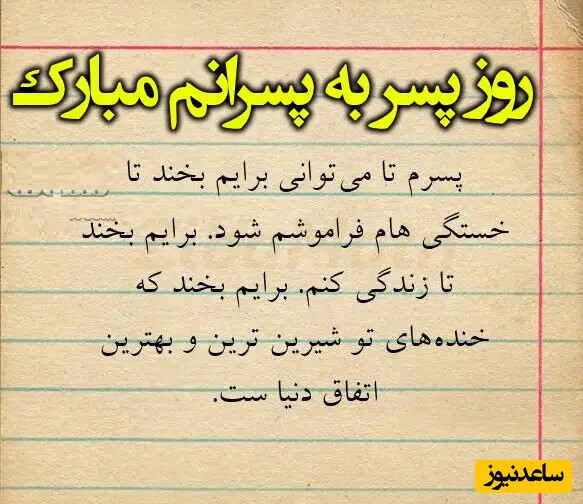 روز پسر به پسرانم مبارک
پسرم تا می‌توانی برایم بخند تا
خستگی هام فراموشم شود. برایم بخند
تا زندگی کنم. برایم بخند که
خنده‌های تو شیرین ترین و بهترین
اتفاق دنیا ست.
ساعدنیوز